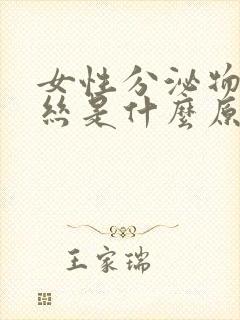 女性分泌物
絲是什麼原
王家瑞